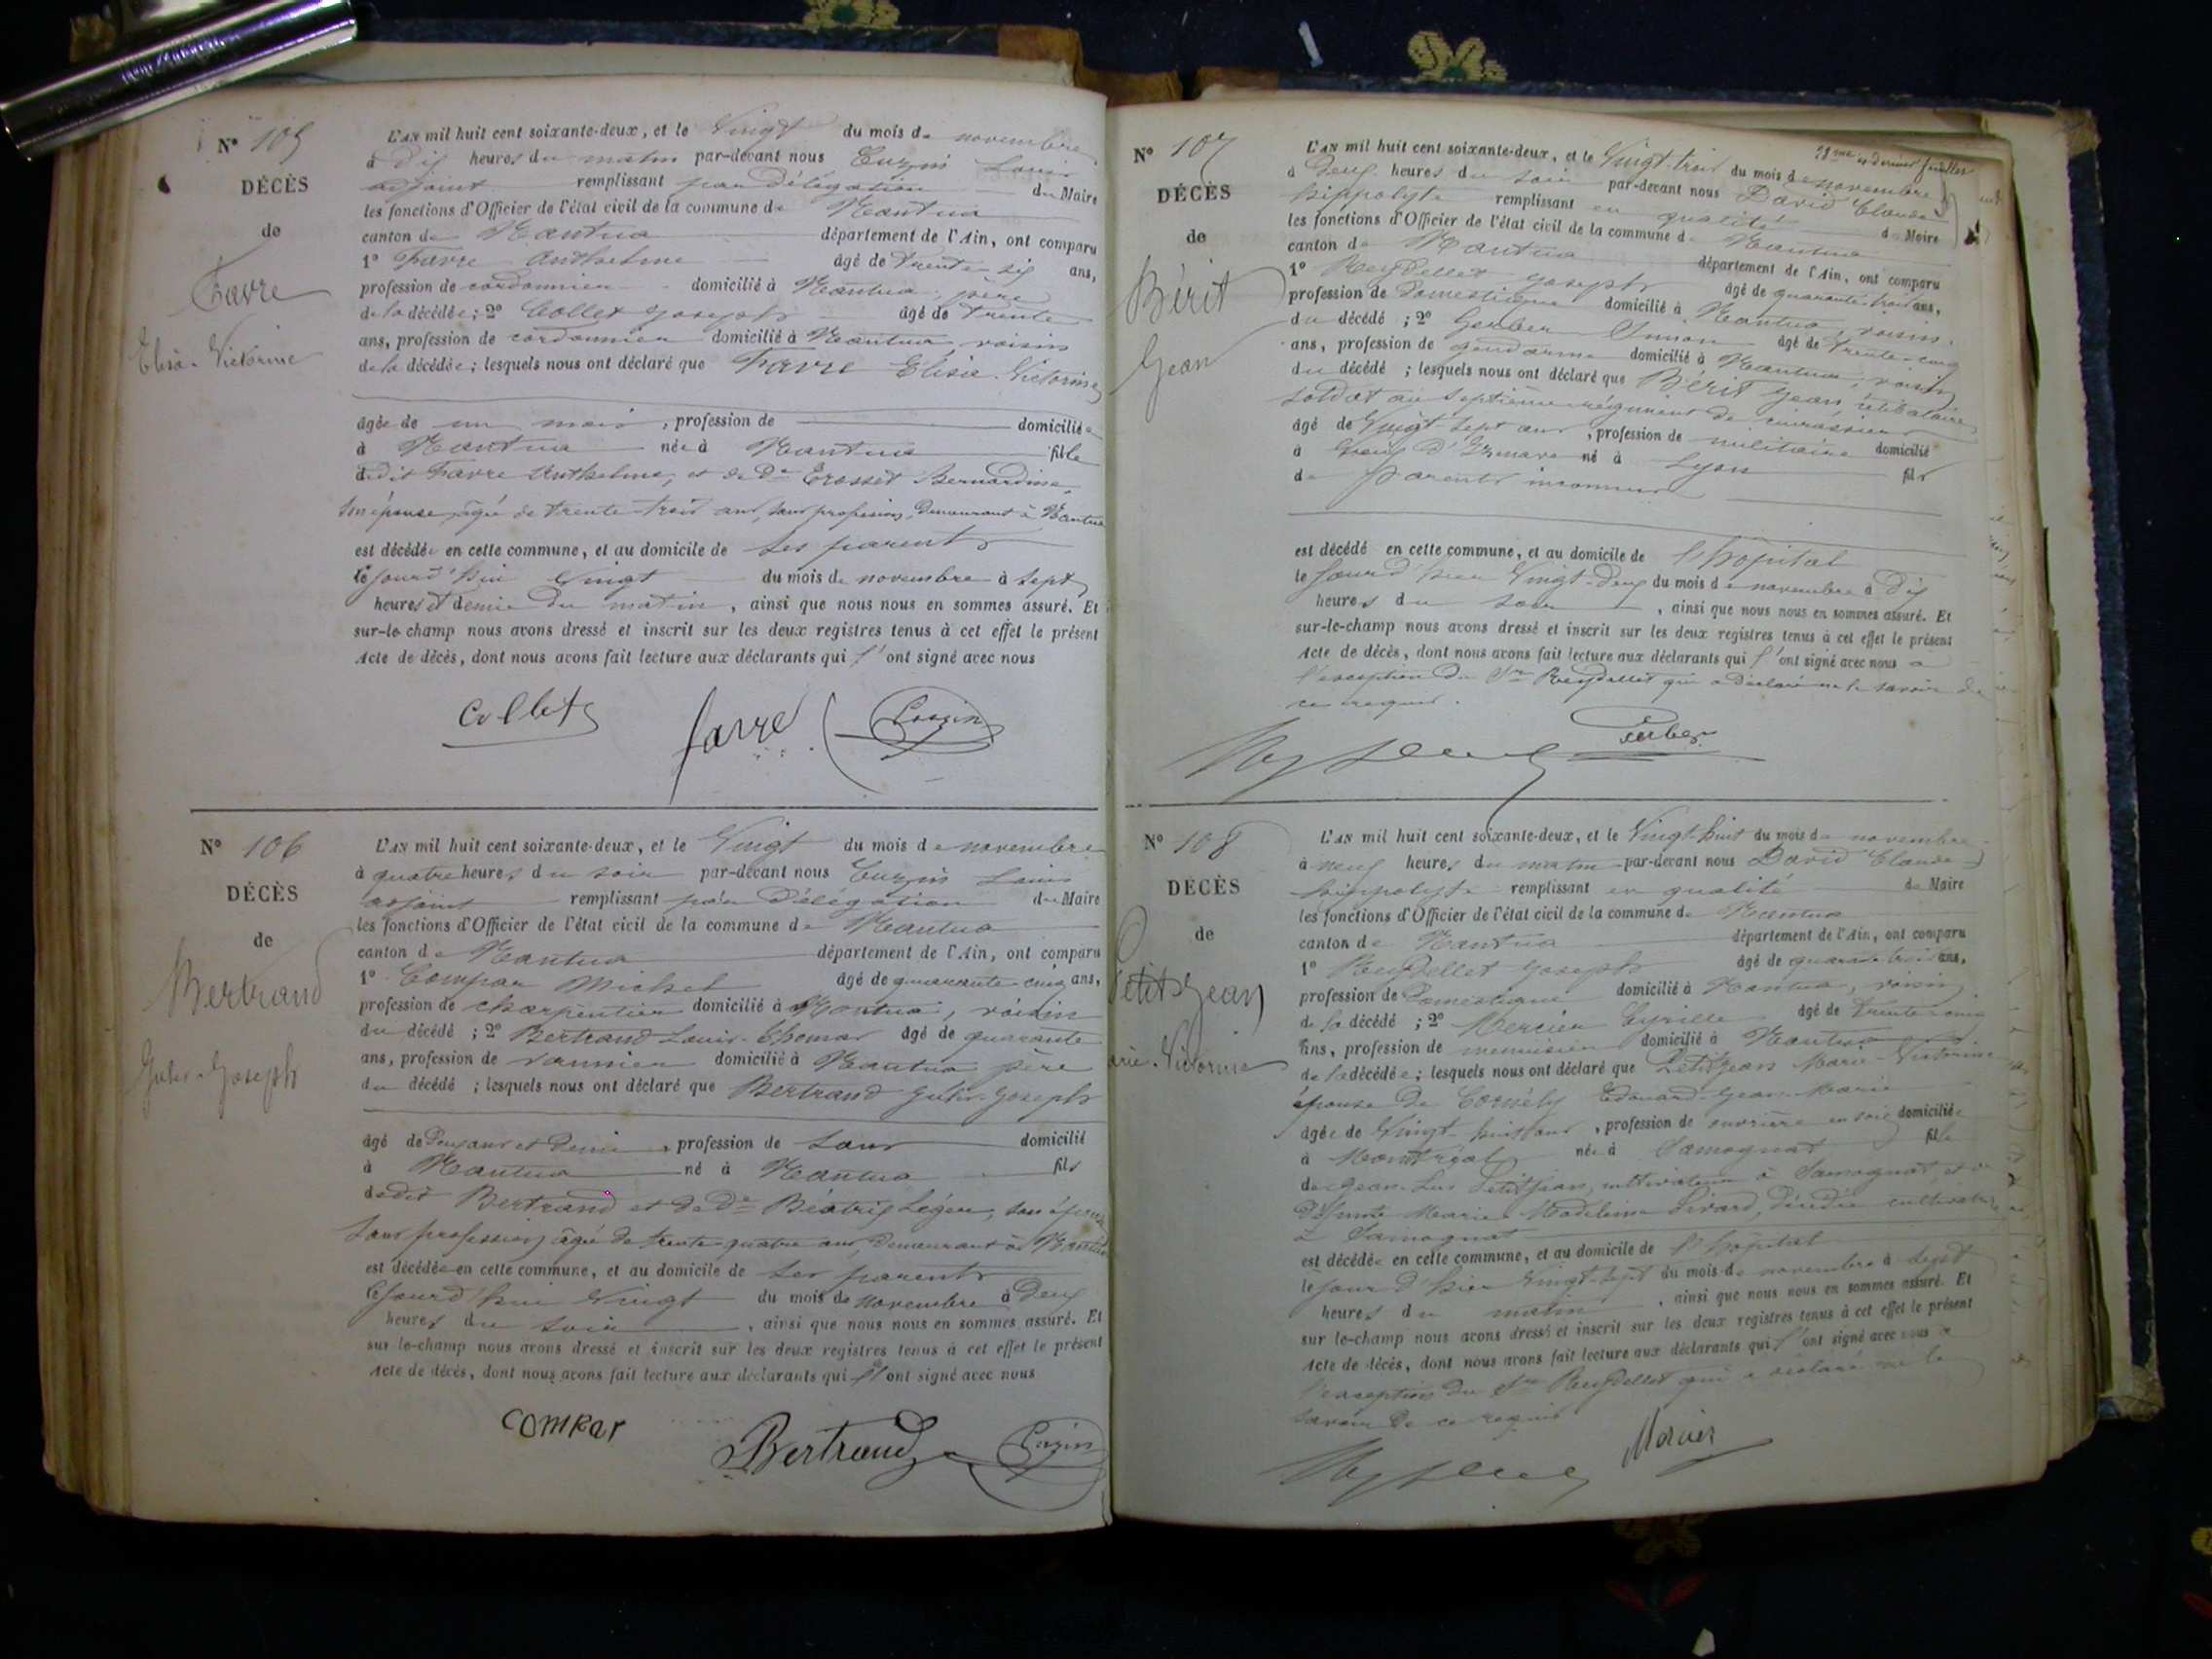 N° 105
DÉCÈS
de
Favre
Elisa-Victorine
L'AN mil huit cent soixante-deux, et le Vingt du mois de novembre
à dix heures du matin par-devant nous Cuzin Louis
adjoint remplissant par délégation du Maire
les fonctions d'Officier de l'état civil de la commune de Nantua
canton de Nantua département de l'Ain, ont comparu
1° Favre Anthelme âgé de trente six ans,
profession de cordonnier domicilié à Nantua, père
de la décédée; 2° Collet Joseph âgé de trente
ans, profession de cordonnier domicilié à Nantua, voisin
de la décédée; lesquels nous ont déclaré que Favre Elisa Victorine
âgée de un mois, profession de domiciliée
à Nantua née à Nantua fille
dudit Favre Anthelme, et de De Crosset Bernardine,
son épouse, âgée de trente-trois ans, sans profession, demeurant à Nantua
est décédée en cette commune, et au domicile de ses parents
le jourd'hui Vingt du mois de novembre à sept
heures et demie du matin, ainsi que nous nous en sommes assuré. Et
sur-le-champ nous avons dressé et inscrit sur les deux registres tenus à cet effet le présent
Acte de décès, dont nous avons fait lecture aux déclarants qui l'ont signé avec nous
Collet favre Cuzin
N° 106
DÉCÈS
de
Bertrand
Jules-Joseph
L'AN mil huit cent soixante-deux, et le Vingt du mois de novembre
à quatre heures du soir par-devant nous Cuzin Louis
adjoint remplissant par délégation du Maire
les fonctions d'Officier de l'état civil de la commune de Nantua
canton de Nantua département de l'Ain, ont comparu
1° Compar Michel âgé de quarante cinq ans,
profession de charpentier domicilié à Nantua, voisin
du décédé; 2° Bertrand Louis-Thomas âgé de quarante
ans, profession de vannier domicilié à Nantua père
du décédé; lesquels nous ont déclaré que Bertrand Jules-Joseph
âgé de deux ans et demi, profession de sans domicilié
à Nantua né à Nantua fils
dudit Bertrand et de De Béatrix Légère, son épouse
sans profession, âgée de trente-quatre ans, demeurant à Nantua
est décédée en cette commune, et au domicile de ses parents
le jourd'hui Vingt du mois de novembre à deux
heures du soir, ainsi que nous nous en sommes assuré. Et
sur-le-champ nous avons dressé et inscrit sur les deux registres tenus à cet effet le présent
Acte de décès, dont nous avons fait lecture aux déclarants qui l'ont signé avec nous
Compar Bertrand Cuzin
28me et dernier feuillet
N° 107
DÉCÈS
de
Bérit
Jean
L'AN mil huit cent soixante-deux, et le Vingt-trois du mois de novembre
à deux heures du soir par-devant nous David Claude
hippolyte remplissant en qualité de Maire
les fonctions d'Officier de l'état civil de la commune de Nantua
canton de Nantua département de l'Ain, ont comparu
1° Reydellet Joseph âgé de quarante-trois ans,
profession de domestique domicilié à Nantua, voisin
du décédé; 2° Gerber Simon âgé de trente-cinq
ans, profession de gendarme domicilié à Nantua, voisin
du décédé; lesquels nous ont déclaré que Bérit Jean, célibataire,
soldat au septième régiment de cuirassiers
âgé de Vingt sept ans, profession de militaire domicilié
à né à Lyon fils
de parents inconnus
est décédé en cette commune, et au domicile de l'hôpital
le jour d'hier Vingt-deux du mois de novembre à dix
heures du soir, ainsi que nous nous en sommes assuré. Et
sur-le-champ nous avons dressé et inscrit sur les deux registres tenus à cet effet le présent
Acte de décès, dont nous avons fait lecture aux déclarants qui l'ont signé avec nous à
l'exception du Sr Reydellet qui a déclaré ne le savoir de
ce requis.
Gerber
N° 108
DÉCÈS
de
Petitjean
Marie-Victorine
L'AN mil huit cent soixante-deux, et le Vingt-huit du mois de novembre
à neuf heures du matin par-devant nous David Claude
hippolyte remplissant en qualité de Maire
les fonctions d'Officier de l'état civil de la commune de Nantua
canton de Nantua département de l'Ain, ont comparu
1° Reydellet Joseph âgé de quarante trois ans,
profession de domestique domicilié à Nantua, voisin
de la décédé; 2° Mercier Cyrille âgé de trente-cinq
ans, profession de menuisier domicilié à Nantua
de la décédée; lesquels nous ont déclaré que Petitjean Marie-Victorine
épouse de Cornély Edouard-Jean-Marie
âgée de Vingt-huit ans, profession de ouvrière en soie domiciliée
à Montréal née à Samognat fille
de Jean-Luc Petitjean, cultivateur à Samognat, et de
défunte Marie Madeleine Livard, décédée cultivatrice
à Samognat
est décédée en cette commune, et au domicile de l'hôpital
le jour d'hier Vingt-sept du mois de novembre à sept
heures du matin, ainsi que nous nous en sommes assuré. Et
sur-le-champ nous avons dressé et inscrit sur les deux registres tenus à cet effet le présent
Acte de décès, dont nous avons fait lecture aux déclarants qui l'ont signé avec nous à
l'exception du Sr Reydellet qui a déclaré ne le
savoir de ce requis
Mercier